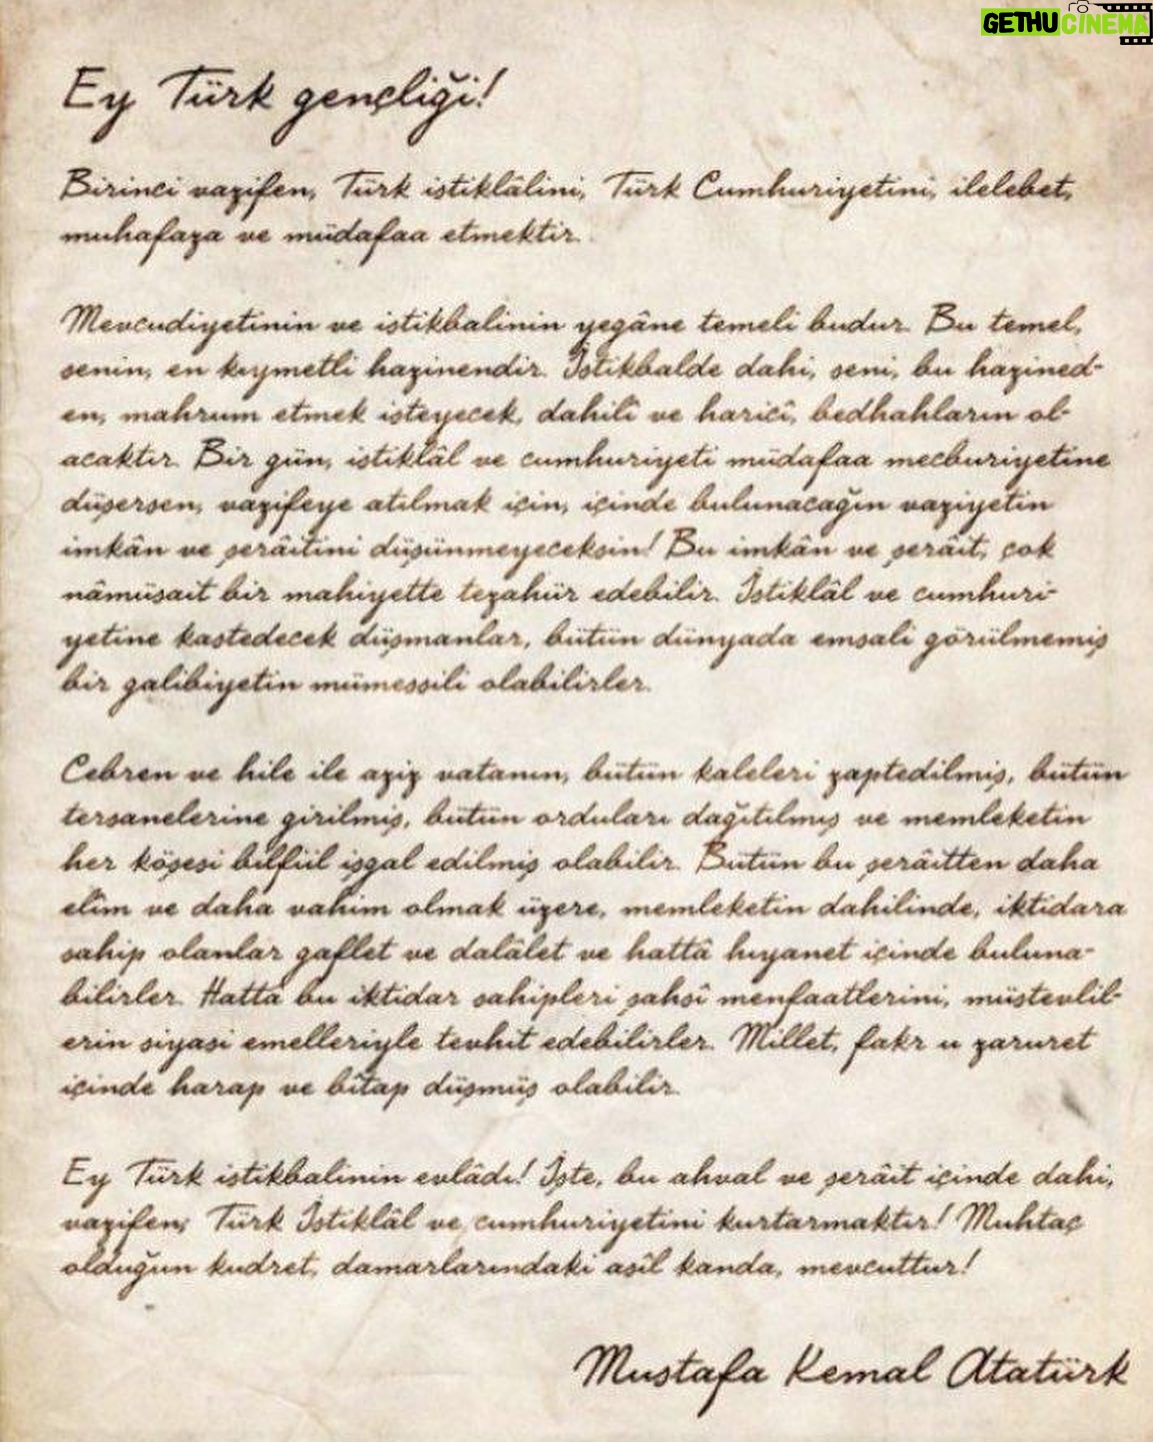 GETHUCINEMA
Ey Türk gençliği!
Birinci vazifen, Türk istiklâlini, Türk Cumhuriyetini, ilelebet,
muhafaza ve müdafaa etmektir.
Mevcudiyetinin ve istikbalinin yegâne temeli budur. Bu temel,
senin, en kıymetli hazinendir. İstikbalde dahi, seni, bu hazined-
en, mahrum etmek isteyecek, dahilî ve haricî, bedhahların ol-
acaktır. Bir gün, istiklâl ve cumhuriyeti müdafaa mecburiyetine
düşersen, vazifeye atılmak için, içinde bulunacağın vaziyetin
imkân ve şerâitini düşünmeyeceksin! Bu imkân ve şerâit, çok
nâmüsait bir mahiyette tezahür edebilir. İstiklâl ve cumhuri-
yetine kastedecek düşmanlar, bütün dünyada emsali görülmemiş
bir galibiyetin mümessili olabilirler.
Cebren ve hile ile aziz vatanın, bütün kaleleri zaptedilmiş, bütün
tersanelerine girilmiş, bütün orduları dağıtılmış ve memleketin
her köşesi bilfiil işgal edilmiş olabilir. Bütün bu şerâitten daha
elîm ve daha vahim olmak üzere, memleketin dahilinde, iktidara
sahip olanlar gaflet ve dalâlet ve hattâ hıyanet içinde buluna-
bilirler. Hattâ bu iktidar sahipleri şahsî menfaatlerini, müstevlil-
erin siyasi emelleriyle tevhit edebilirler. Millet, fakr u zaruret
içinde harap ve bîtap düşmüş olabilir.
Ey Türk istikbalinin evlâdı! İşte, bu ahval ve şerâit içinde dahi,
vazifen; Türk İstiklâl ve cumhuriyetini kurtarmaktır! Muhtaç
olduğun kudret, damarlarındaki asîl kanda, mevcuttur!
Mustafa Kemal Atatürk